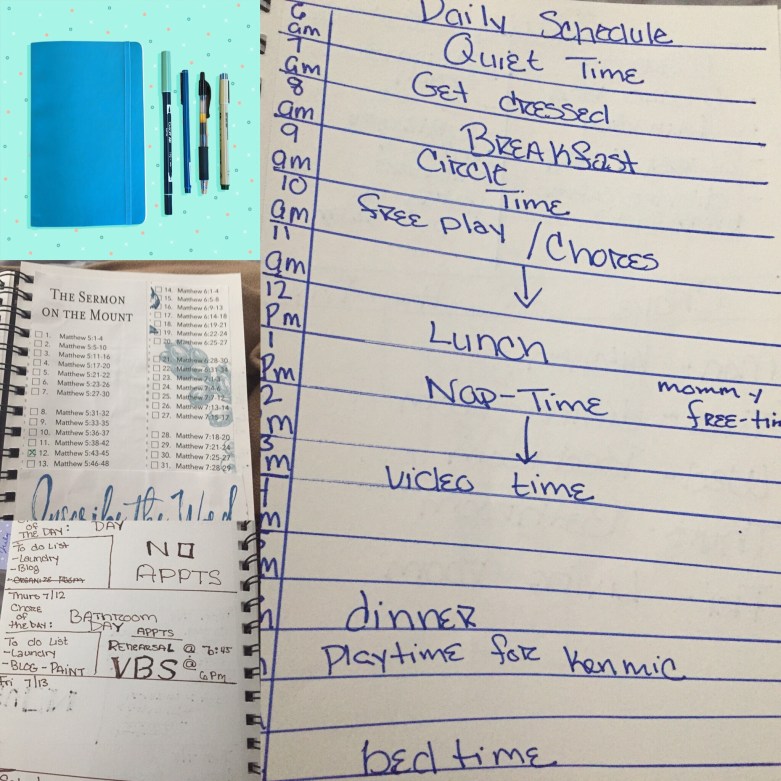 THE SERMON
ON THE MOUNT
1. Matthew 5:1-4
2. Matthew 5:5-10
3. Matthew 5:11-16
4. Matthew 5:17-20
5. Matthew 5:21-22
6. Matthew 5:23-26
7. Matthew 5:27-30
8. Matthew 5:31-32
9. Matthew 5:33-35
10. Matthew 5:36-37
11. Matthew 5:38-42
12. Matthew 5:43-45
13. Matthew 5:46-48
14. Matthew 6:1-4
15. Matthew 6:5-8
16. Matthew 6:9-13
17. Matthew 6:14-18
18. Matthew 6:19-21
19. Matthew 6:22-24
20. Matthew 6:25-27
21. Matthew 6:28-30
22. Matthew 6:31-34
23. Matthew
24. Matthew
25. Matthew 7:7-12
26. Matthew 7:13-14
27. Matthew 7:15-17
28. Matthew 7:18-20
29. Matthew 7:21-24
30. Matthew 7:25-27
31. Matthew 7:28-29
the Word
of
THE DAY: DAY
To do List
-Laundry
-Blog
-ORGANIZE ROOM
NO
APPTS
Thurs 7/12
Chore
of
the DAY: BATHROOM
DAY APPTS
To do List
-Laundry
-BLOG - PAINT
REHEARSAL @
VBS @
6pm
Fri 7/13
Daily Schedule
6 am
7 am Quiet Time
8 am Get dressed
9 am BREAkfast
10 am Circle Time
11 am free play / Choices
12 pm
1 pm Lunch
2 m Nap-Time mommy
free-tim
3 m
Video time
m
m
dinner
Playtime for Kenmic
bedtime